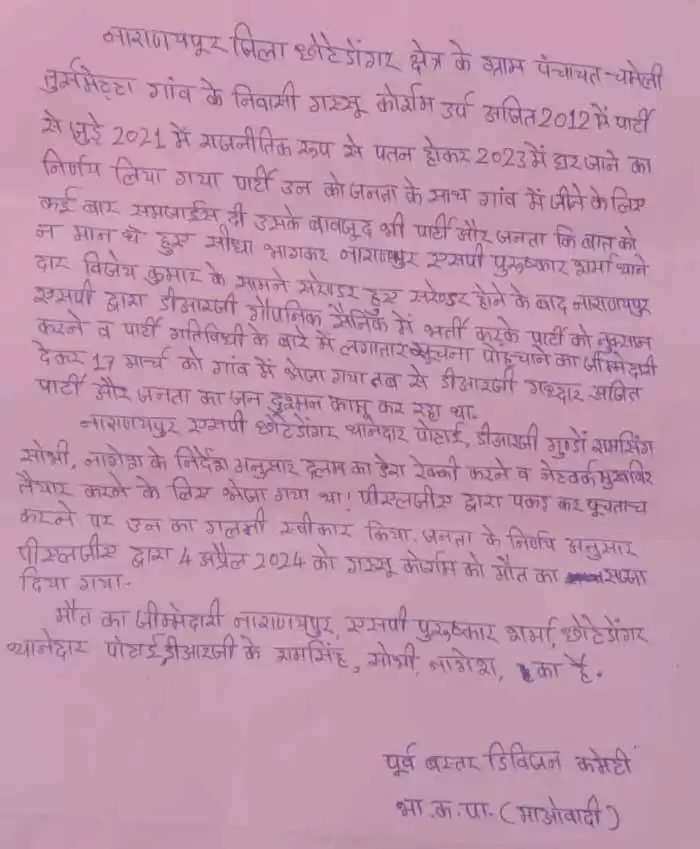 नाराणयपूर जिला छोटेडोंगर क्षेत्र के ग्राम पंचायत-चमेली
तुर्समेट्टा गांव के निवासी गस्सू कोर्राम उर्प अजित 2012 में पार्टी
से जुड़े 2021 में राजनीतिक रूप से पतन होकर 2023 में घर जाने का
निर्णय लिया गया पार्टी उन को जनता के साथ गांव में जीने के लिए
कई बार समजाईस दी उसके बावजूद भी पार्टी और जनता कि बात को
न मान थे हुए सीधा भागकर नाराणपूर एसपी पुरूष्कार शर्मा थाने
दार विजेय कुमार के सामने सरेण्डर हुए सरेण्डर होने के बाद नाराणयपूर
एसपी द्वारा डीआरजी गौपनिक सैनिक में भर्ती करके पार्टी को नुक्सान
करने व पार्टी गतिविधी के बारे में लगातार सूचना पोहचाने का जीम्मेदारी
देकर 17 मार्च को गांव में भेजा गया तब से डीआरजी गद्दार अजित
पार्टी और जनता का जन दुश्मन काम कर रहा था.
नाराणयपूर एसपी छोटेडोंगर थानेदार पोटाई, डीआरजी गुण्डों रामसिंग
सोभी, नागेश के निर्देश अनुसार दलाम का डेरा रेक्की करने व नेटवर्क मुखबिर
तैयार करने के लिए भेजा गया था! पीएलजीए द्वारा पकड़ कर पूचताच
करने पर उन का गलती स्वीकार किया. जनता के निर्णय अनुसार
पीएलजीए द्वारा 4 अप्रैल 2024 को गस्सू कोर्राम को मौत का सज्जा
दिया गया.
मौत का जीम्मेदारी नाराणयपूर, एसपी पुरूष्कार शर्मा, छोटेडोंगर
थानेदार पोटाई, डीआरजी के रामसिंह, सोभी, नागेश, का है.
पूर्व बस्तर डिविजन कमेटी
भा.क.पा. (माओवादी)